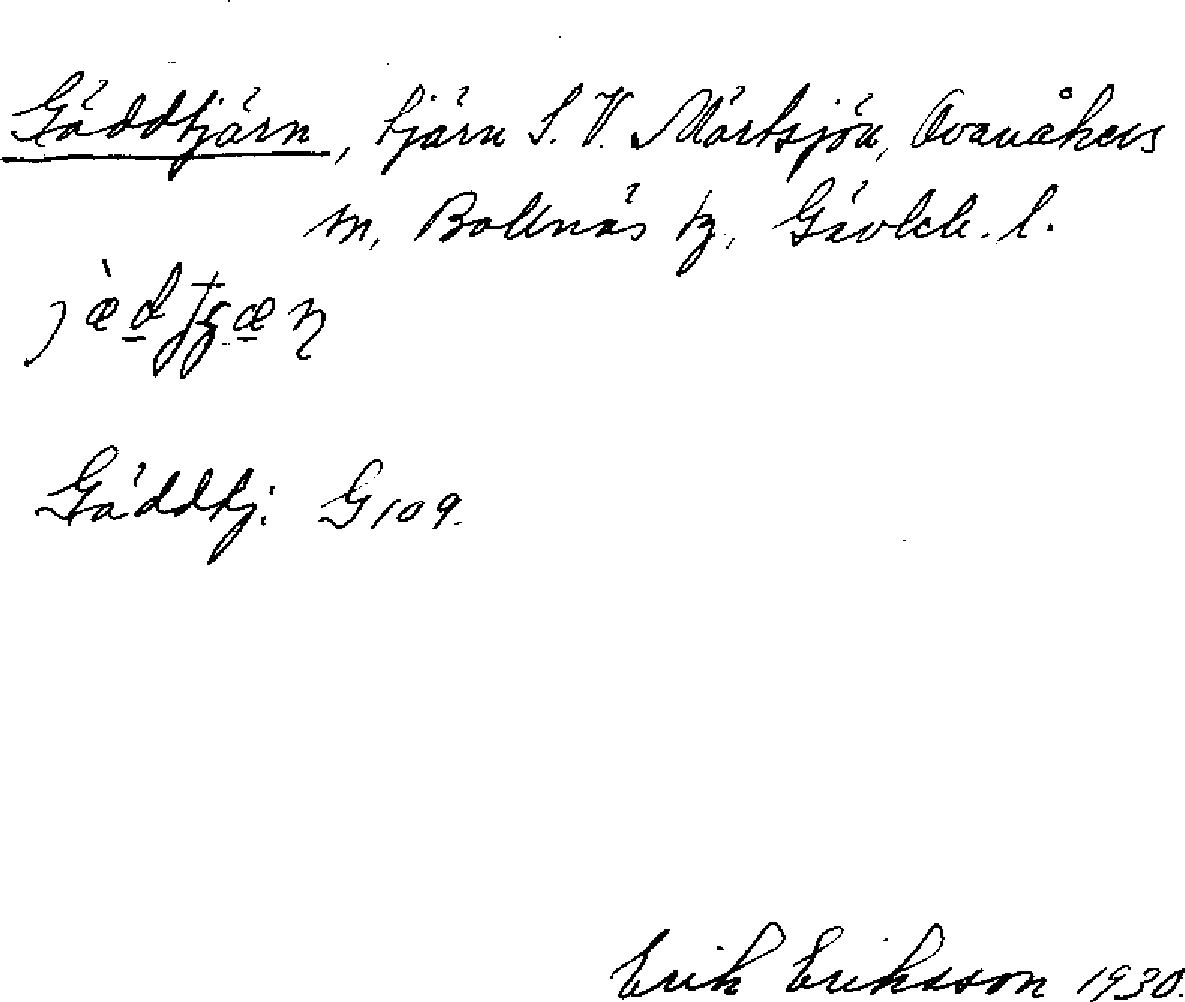 Gäddtjärn, tjärn S. V. Mörtsjön, Ovanåkers
sn, Bollnäs tg, Gävleb. l.
Gäddtj. G109.
Erik Eriksson 1930.